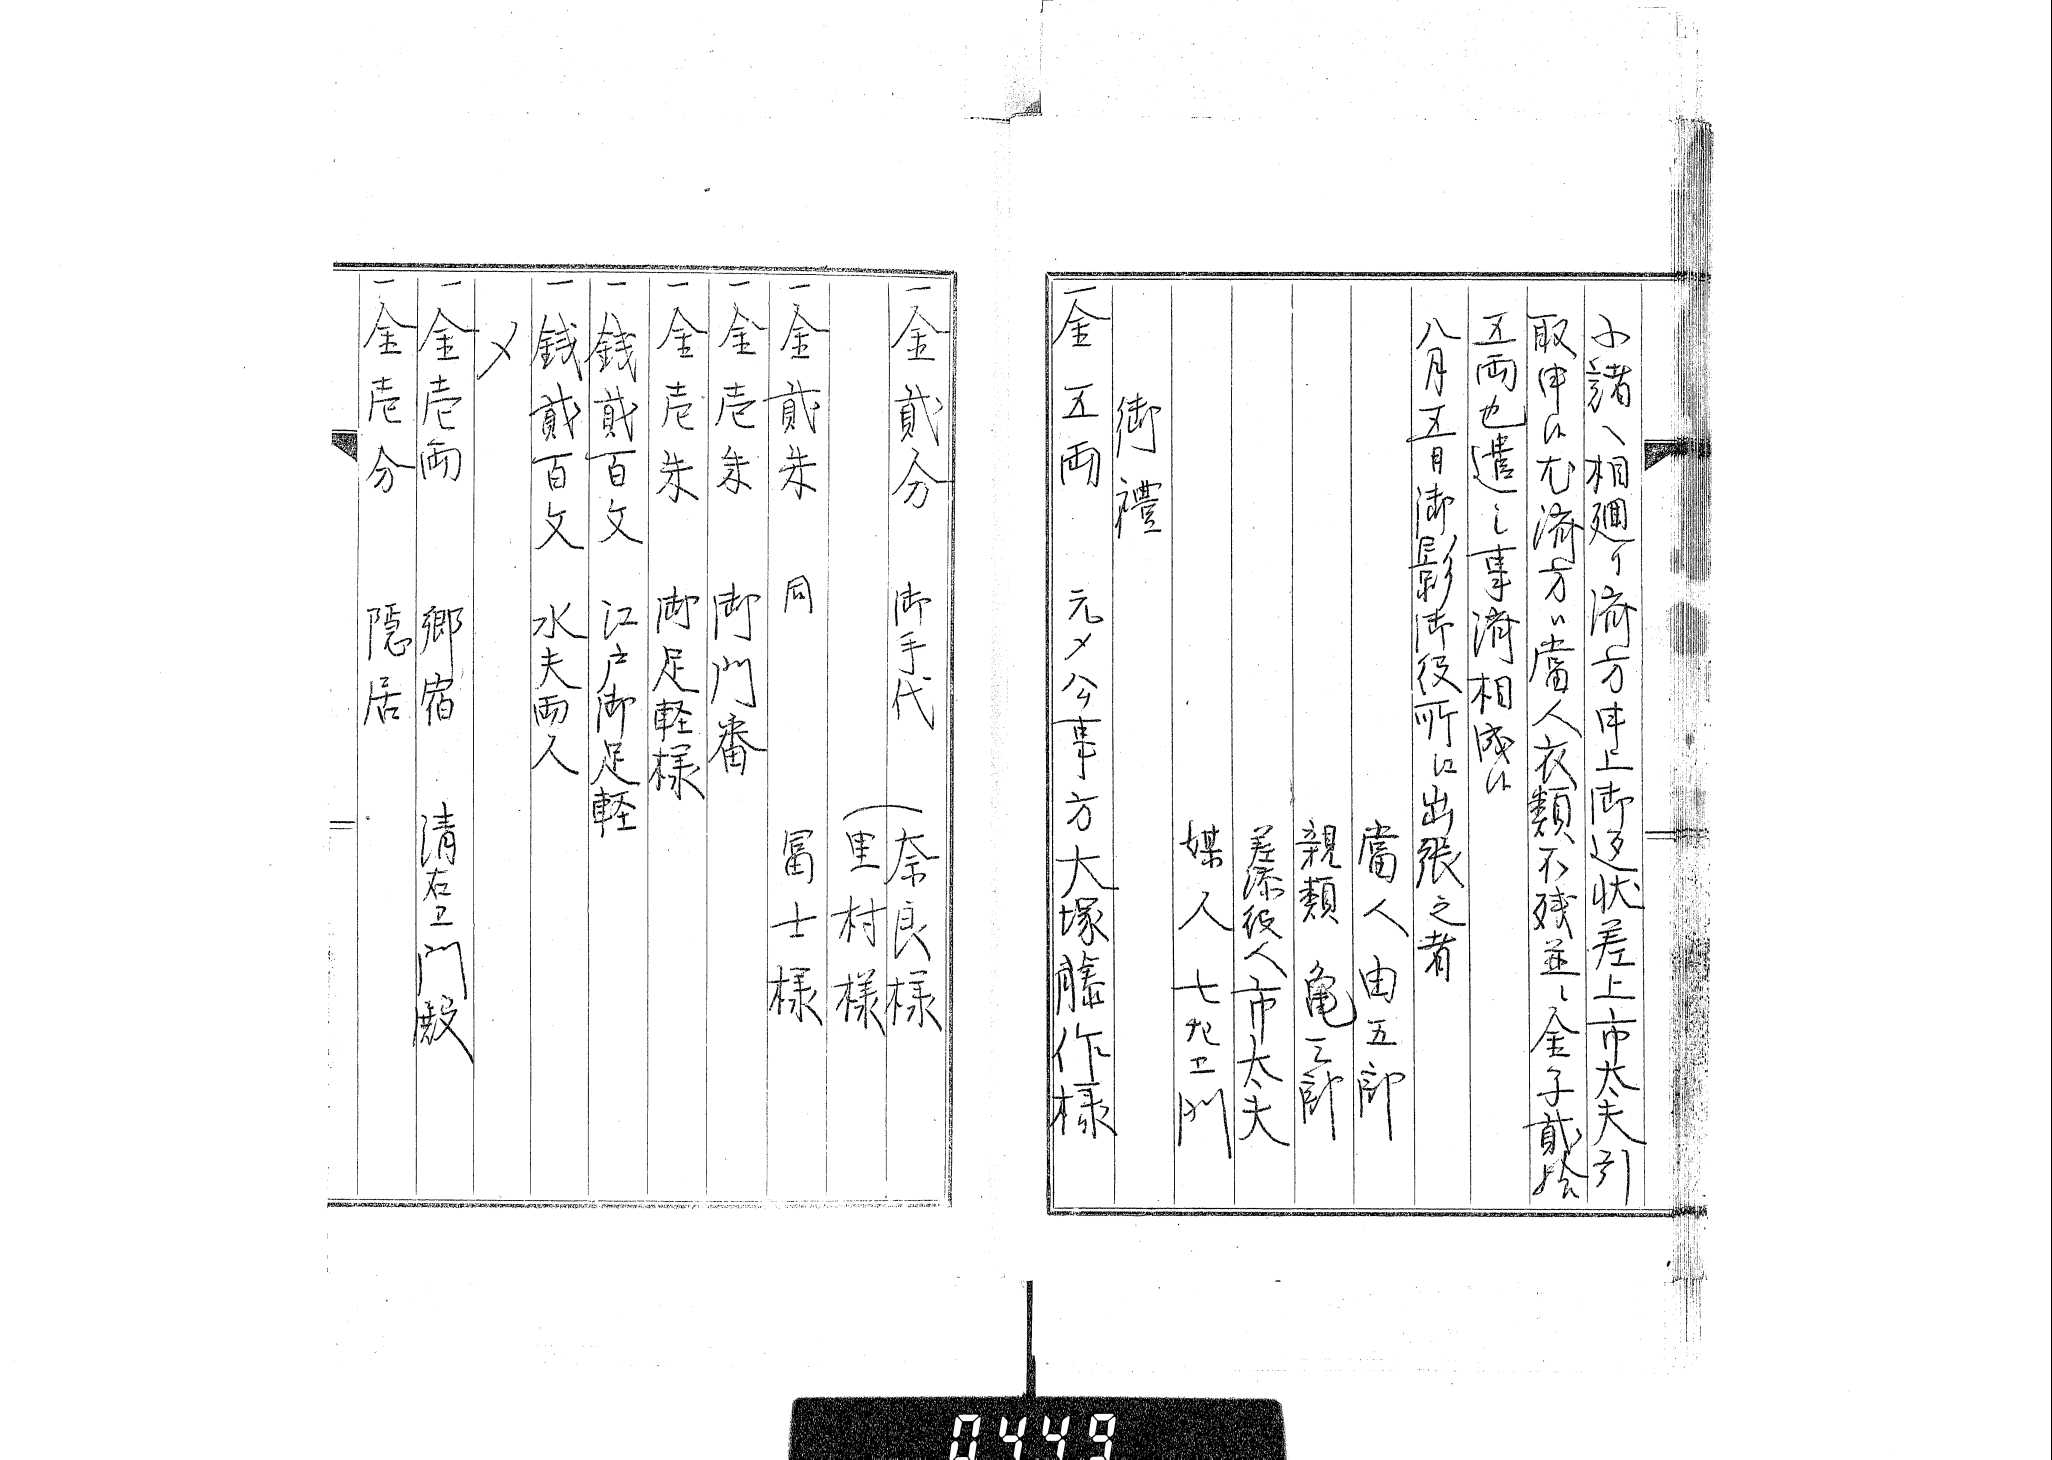 小諸へ相廻り済方申上御返状差上市太夫引
取申候尤済方ハ當人衣類不残並ニ金子貳拾
五両也遣し事済相成候
八月五日御影御役所江出張之者
當人 由五郎
親類 亀三郎
差添役人 市太夫
媒人 七九卫門
御禮
一金五両 元〆公事方 大塚藤作様
一金貳分 御手代 奈良様
里村様
一金貳朱 同 冨士様
一金壱朱 御門番
一金壱朱 御足軽様
一銭貳百文 江戸御足軽
一銭貳百文 水夫両人
〆
一金壱両 郷宿 清右卫門殿
一金壱分 隠居
0449